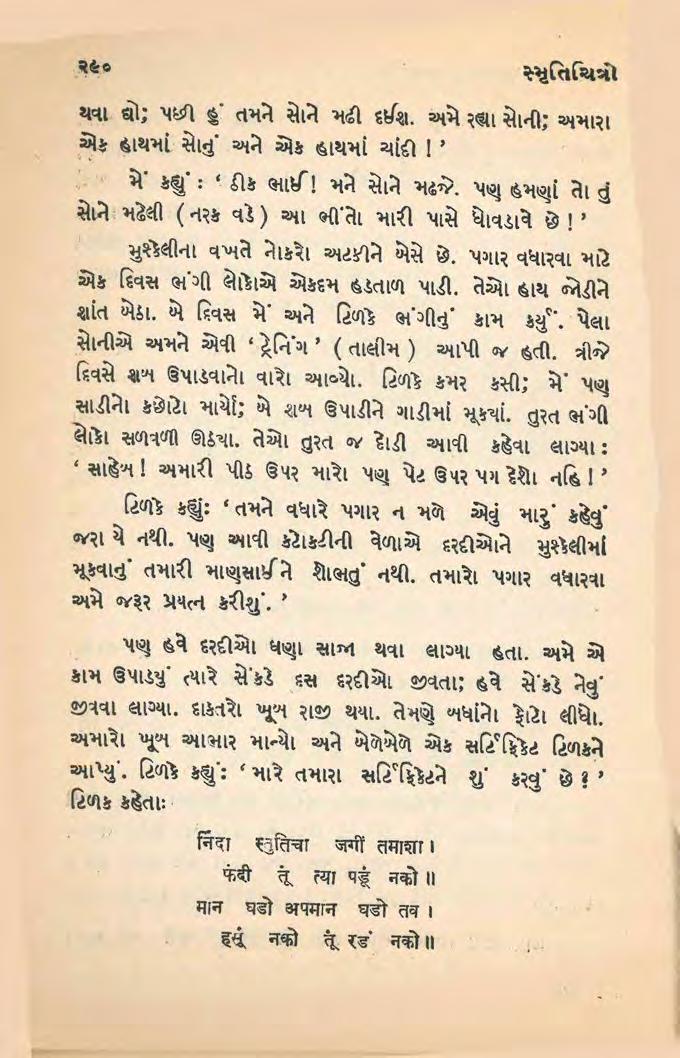 ૨૯૦ સ્મૃતિચિત્રો
થવા દ્યો; પછી હું તમને સોને મઢી દઈશ. અમે રહ્યા સોની; અમારા
એક હાથમાં સોનું અને એક હાથમાં ચાંદી ! ’
મેં કહ્યું : ‘ ઠીક ભાઈ! મને સોને મઢજે. પણ હમણાં તો તું
સોને મઢેલી ( નરક વડે ) આ ભીંતો મારી પાસે ધોવડાવે છે ! ’
મુશ્કેલીના વખતે નોકરો અટકીને બેસે છે. પગાર વધારવા માટે
એક દિવસ ભંગી લોકોએ એકદમ હડતાળ પાડી. તેઓ હાથ જોડીને
શાંત બેઠા. બે દિવસ મેં અને ટિળકે ભંગીનું કામ કર્યું. પેલા
સોનીએ અમને એવી ‘ ટ્રેનિંગ ’ ( તાલીમ ) આપી જ હતી. ત્રીજે
દિવસે શબ ઉપાડવાનો વારો આવ્યો. ટિળકે કમર કસી; મેં પણ
સાડીનો કછોટો માર્યો; બે શબ ઉપાડીને ગાડીમાં મૂક્યાં. તુરત ભંગી
લોકો સળવળી ઊઠયા. તેઓ તુરત જ દોડી આવી કહેવા લાગ્યા :
‘ સાહેબ ! અમારી પીઠ ઉપર મારો પણ પેટ ઉપર પગ દેશો નહિ ! ’
ટિળકે કહ્યું: ‘ તમને વધારે પગાર ન મળે એવું મારું કહેવું
જરા યે નથી. પણ આવી કટોકટીની વેળાએ દરદીઓને મુશ્કેલીમાં
મૂકવાનું તમારી માણસાઈને શોભતું નથી. તમારો પગાર વધારવા
અમે જરૂર પ્રયત્ન કરીશું. ’
પણ હવે દરદીઓ ઘણા સાજા થવા લાગ્યા હતા. અમે એ
કામ ઉપાડયું ત્યારે સેંકડે દસ દરદીઓ જીવતા; હવે સેંકડે નેવું
જીવવા લાગ્યા. દાકતરો ખૂબ રાજી થયા. તેમણે બધાંનો ફોટો લીધો.
અમારો ખૂબ આભાર માન્યો અને ખેળેખેળે એક સર્ટિફિકેટ ટિળકને
આપ્યું. ટિળકે કહ્યું: ‘ મારે તમારા સર્ટિફિકેટને શું કરવું છે ? ’
ટિળક કહેતાઃ
निंदा स्तुतिचा जगीं तमाशा ।
फंदी तूं त्या पडूं नको ॥
मान घडो अपमान घडो तव ।
हसूं नको तूं रडं नको ॥